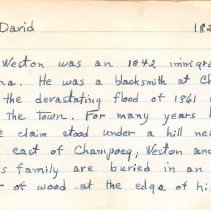 David 182
Weston was an 1842 immigr
na. He was a blacksmith at Ch
the devastating flood of 1861
the Town. For many years h
e claim stood under a hill nea
east of Champoeg, Weston and
s family are buried in an
r of wood at the edge of hi